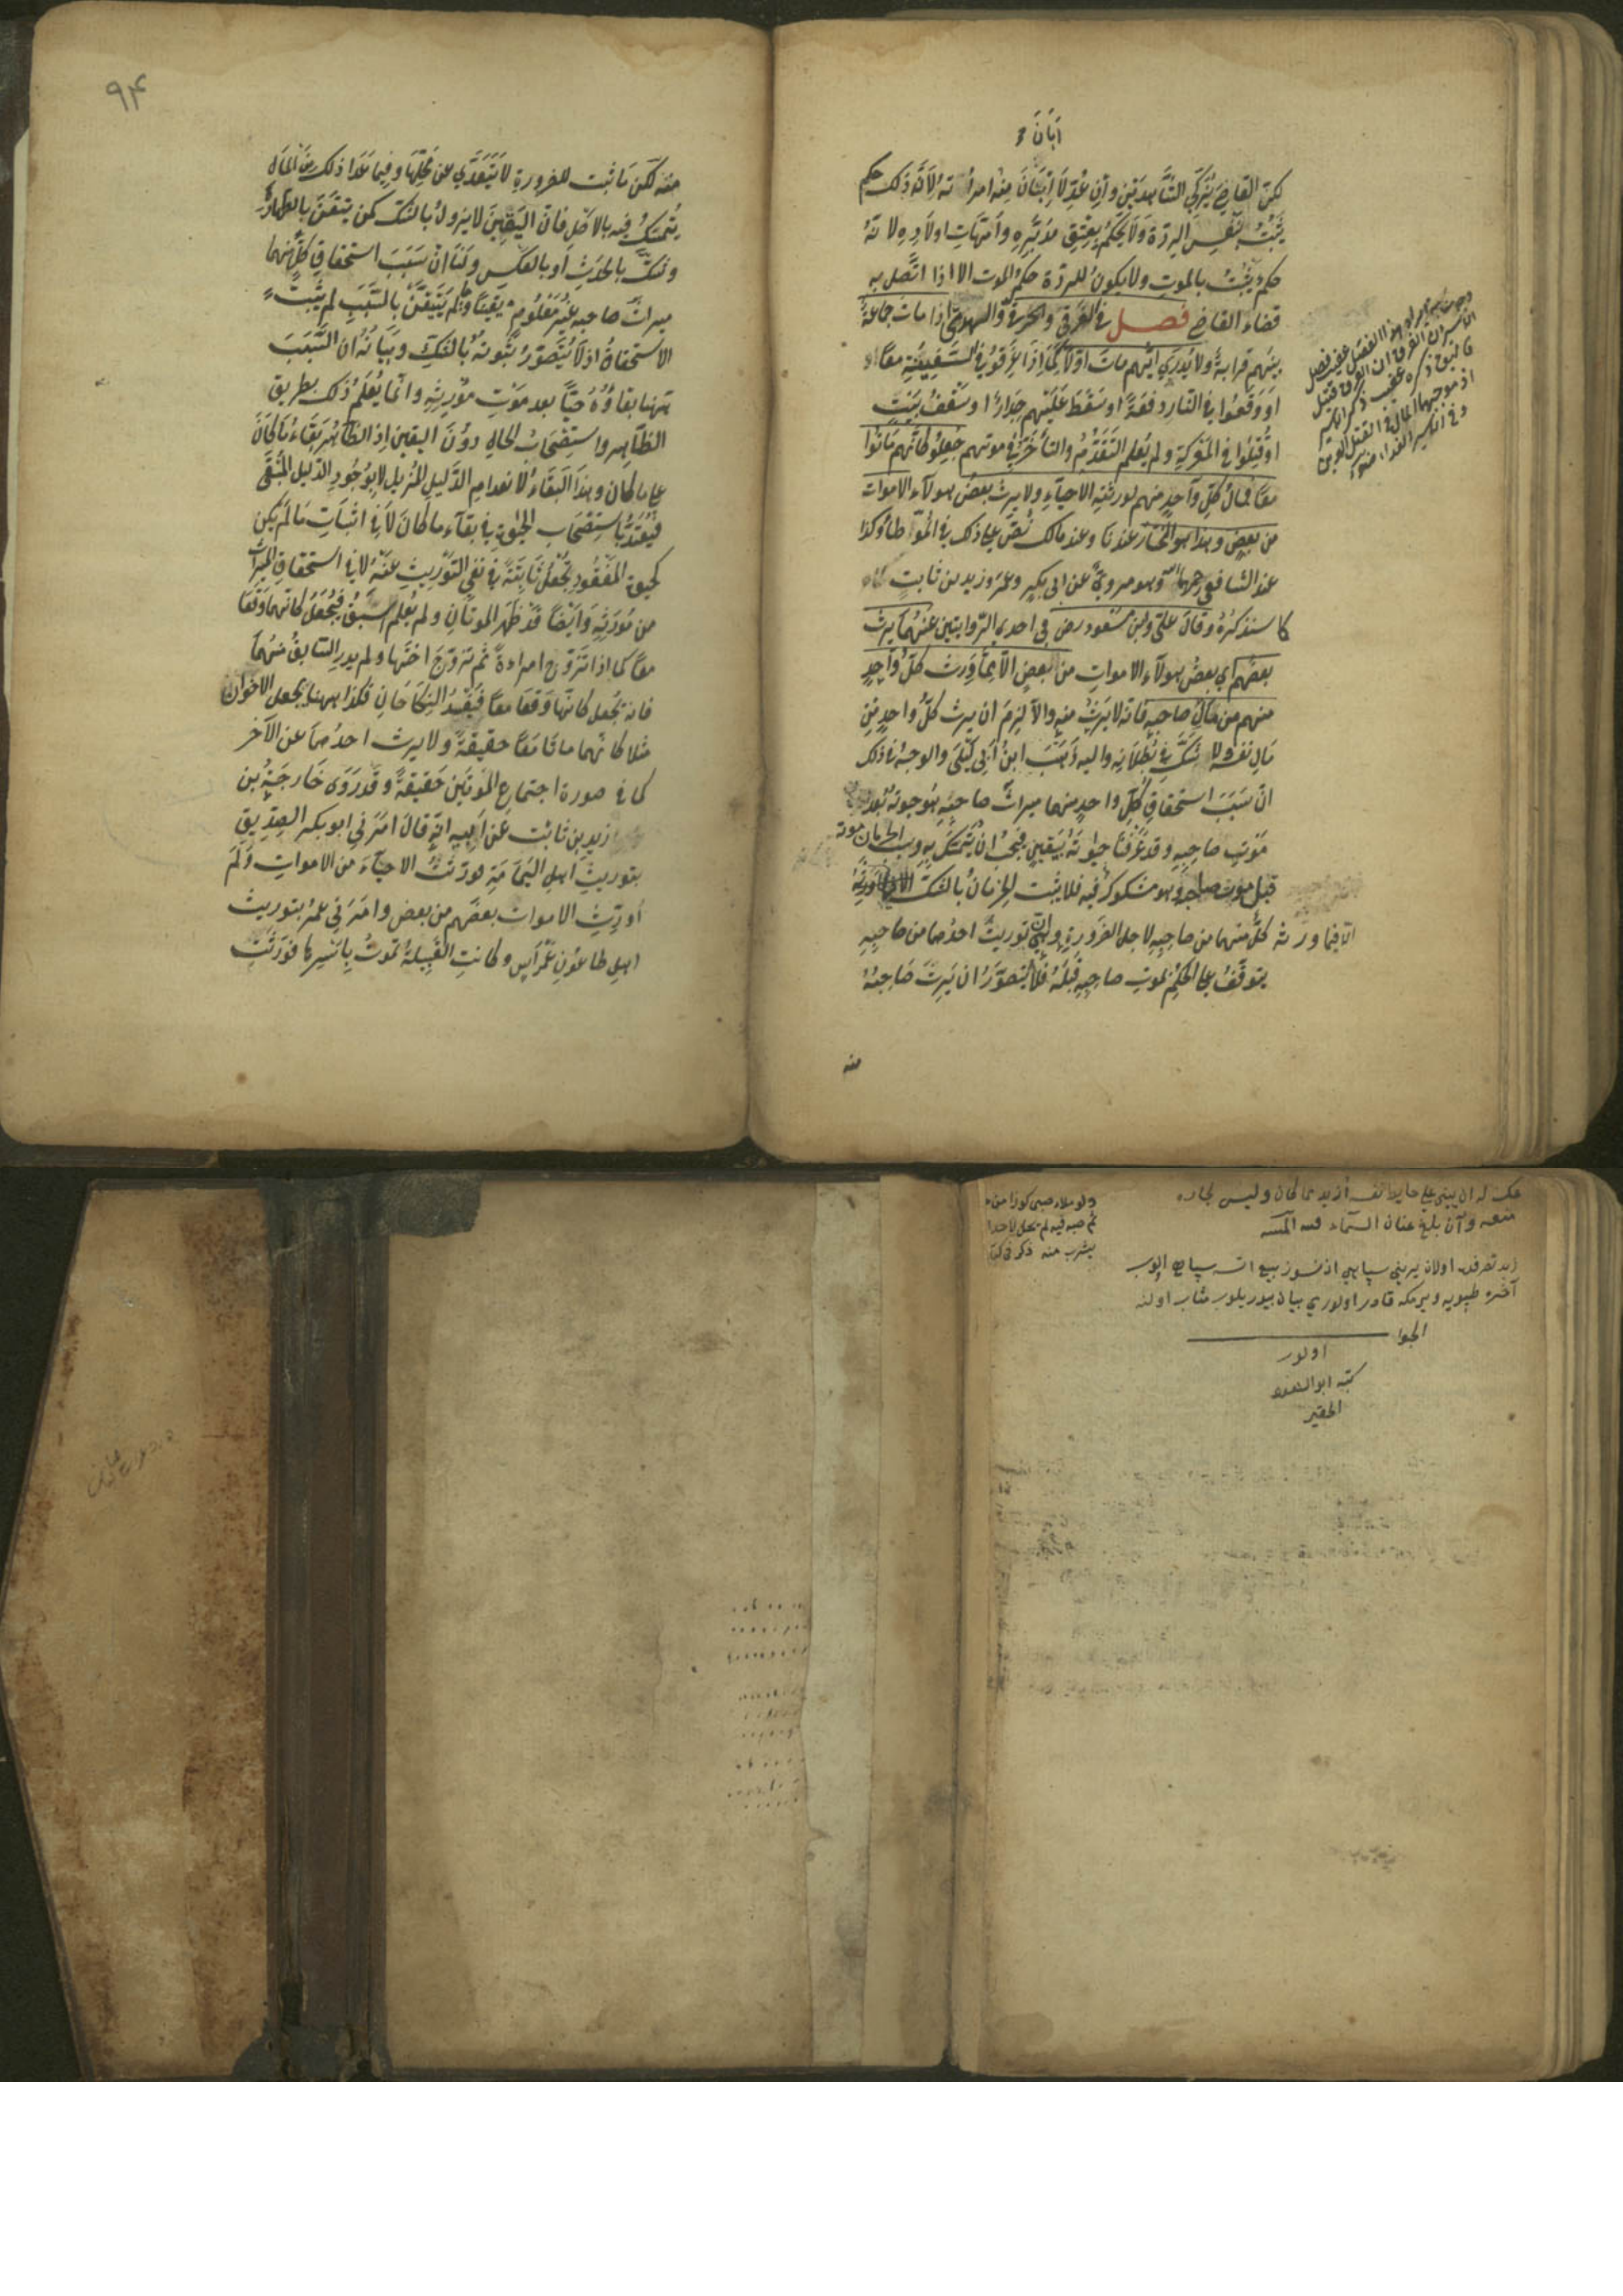 أبان
لكن القاضي يزكي الشاهدين وان عدلا أبان منه امرأته لانه ذلك حكم
يثبت بنفس الردة ولا يحكم بعتق مدبره وأمهات اولاده لانه
حكم يثبت بالموت ولا يكون للردة حكم الموت الا اذا اتصل به
قضاء القاضي فصل في الغرقى والحرقى والهدمى اذا مات جماعة
بينهم قرابة ولا يدري ايهم مات اولا كما اذا غرقوا في السفينة معا او
او وقعوا في النار دفعة او سقط عليهم جدار او سقف بيت
او قتلوا في المعركة ولم يعلم التقدم والتأخر في موتهم جعلوا كانهم ماتوا
معا فمال كل واحد منهم لورثته الاحياء ولا يرث بعض هولاء الاموات
من بعض وهذا هو المختار عندنا وعند مالك نص على ذلك في الموطا وكذا
عند الشافعي رحمهما وهو مروي عن ابي بكر وعمر وزيد بن ثابت
كما سنذكره وقال علي وابن مسعود رض في احدى الروايتين عنهما يرث
بعضهم اي بعض هولاء الاموات من بعض الا مما ورث كل واحد
منهم من مال صاحبه فانه لا يرث منه والا لزم ان يرث كل واحد من
مال نفسه ولا شك في بطلانه واليه ذهب ابن ابي ليلى والوجه في ذلك
ان سبب استحقاق كل واحد منهما ميراث صاحبه هو حيوته بعد
موت صاحبه وقد عرفنا حيوته بيقين فيجب ان يتمسك به وسبب الحرمان موته
قبل موت صاحبه وهو مشكوك فيه فلا يثبت الحرمان بالشك
الا فيما ورثه كل منهما من صاحبه لاجل الضرورة وهي ان توريث احدهما من صاحبه
يتوقف على الحكم بموت صاحبه قبله فلا يتصور ان يرث صاحبه
منه
٩٤
منه لكن ما ثبت للضرورة لا يتعدى عن محلها وفيما عدا ذلك من المال
يتمسك فيه بالاصل فان اليقين لا يزول بالشك كمن يتيقن بالطهارة
وشك بالحدث او بالعكس ولنا ان سبب استحقاق كل منهما
ميراث صاحبه غير معلوم يقينا ولم يتيقن بالسبب لم يثبت
الاستحقاق اذ لا يتصور ثبوته بالشك وبيانه ان السبب
ههنا بقاؤه حيا بعد موت مورثه وانما يعلم ذلك بطريق
الظاهر واستصحاب الحال دون اليقين اذ الظاهر بقاء ما كان
على ما كان وهذا البقاء لانعدام الدليل المزيل لا بوجود الدليل المبقى
فيعتد باستصحاب الحيوة في بقاء ما كان لا في اثبات ما لم يكن
كحيوة المفقود تجعل ثابتة في نفي التوريث عنه لا في استحقاق الميراث
من مورثه وايضا قد ظهر الموتان ولم يعلم السبق فيجعل كانهما وقعا
معا كما اذا تزوج امراءة ثم تزوج اختها ولم يدر السابق منهما
فانه تجعل كانهما وقعا معا فيفسد النكاحان فكذا ههنا يجعل الاخوان
مثلا كانهما ماتا معا حقيقة ولا يرث احدهما عن الآخر
كما في صورة اجتماع الموتين حقيقة وقد روى خارجة بن
زيد بن ثابت عن ابيه انه قال امرني ابو بكر الصديق
بتوريث اهل اليمامة فورثت الاحياء من الاموات ولم
اورث الاموات بعضهم من بعض وامرني عمر بتوريث
اهل طاعون عمواس وكانت القبيلة تموت باسرها فورثت
ولو ملاء صبى كوزا من
ثم صبه فيه لم يحل لاحد
يشرب منه ذكر في
له ان يبني على حايط نفسه أزيد مما كان وليس لجاره
منعه وأن بلغ عنان السماء
الجوا
اولور
كتبه ابو السعود
الحقير